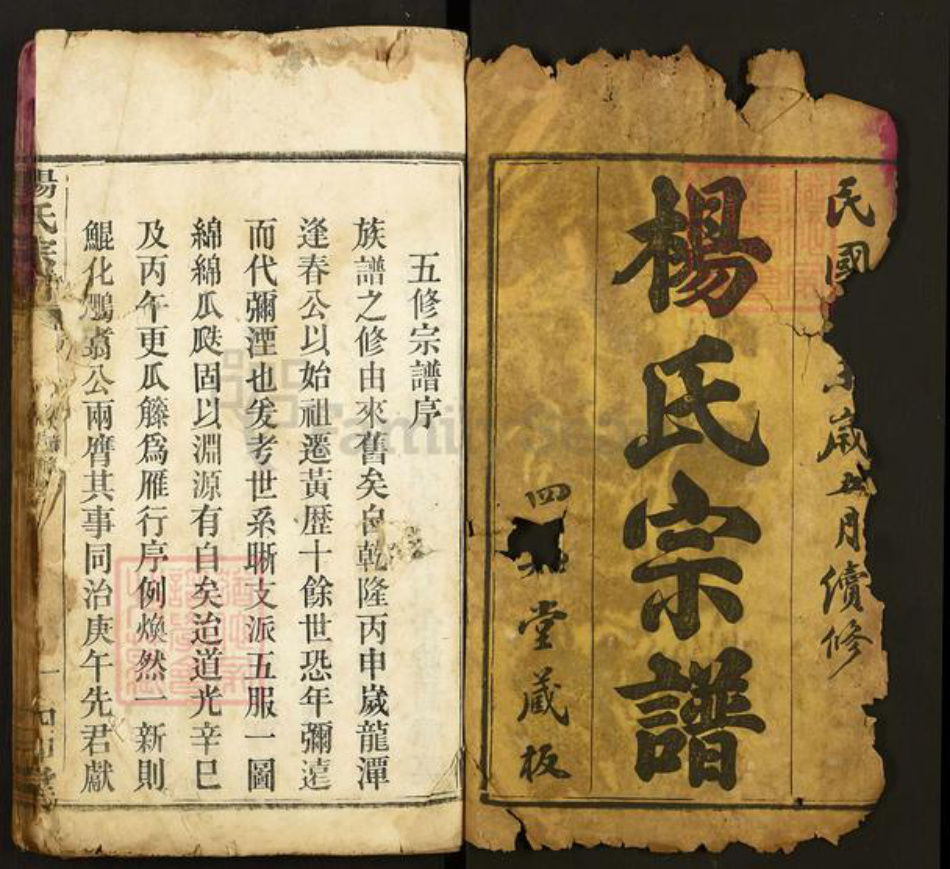 民國 歲 月續修
楊氏宗譜
四 堂藏板
五修宗譜序
族譜之修由來舊矣自乾隆丙申歲龍潭
逢春公以始祖遷黃歷十餘世恐年彌遠
而代彌湮也爰考世系晰支派五服一圖
綿綿瓜瓞固以淵源有自矣迨道光辛巳
及丙午更瓜籐為雁行序例煥然一新則
鯤化鵬翥公兩膺其事同治庚午先君獻
楊氏宗
一